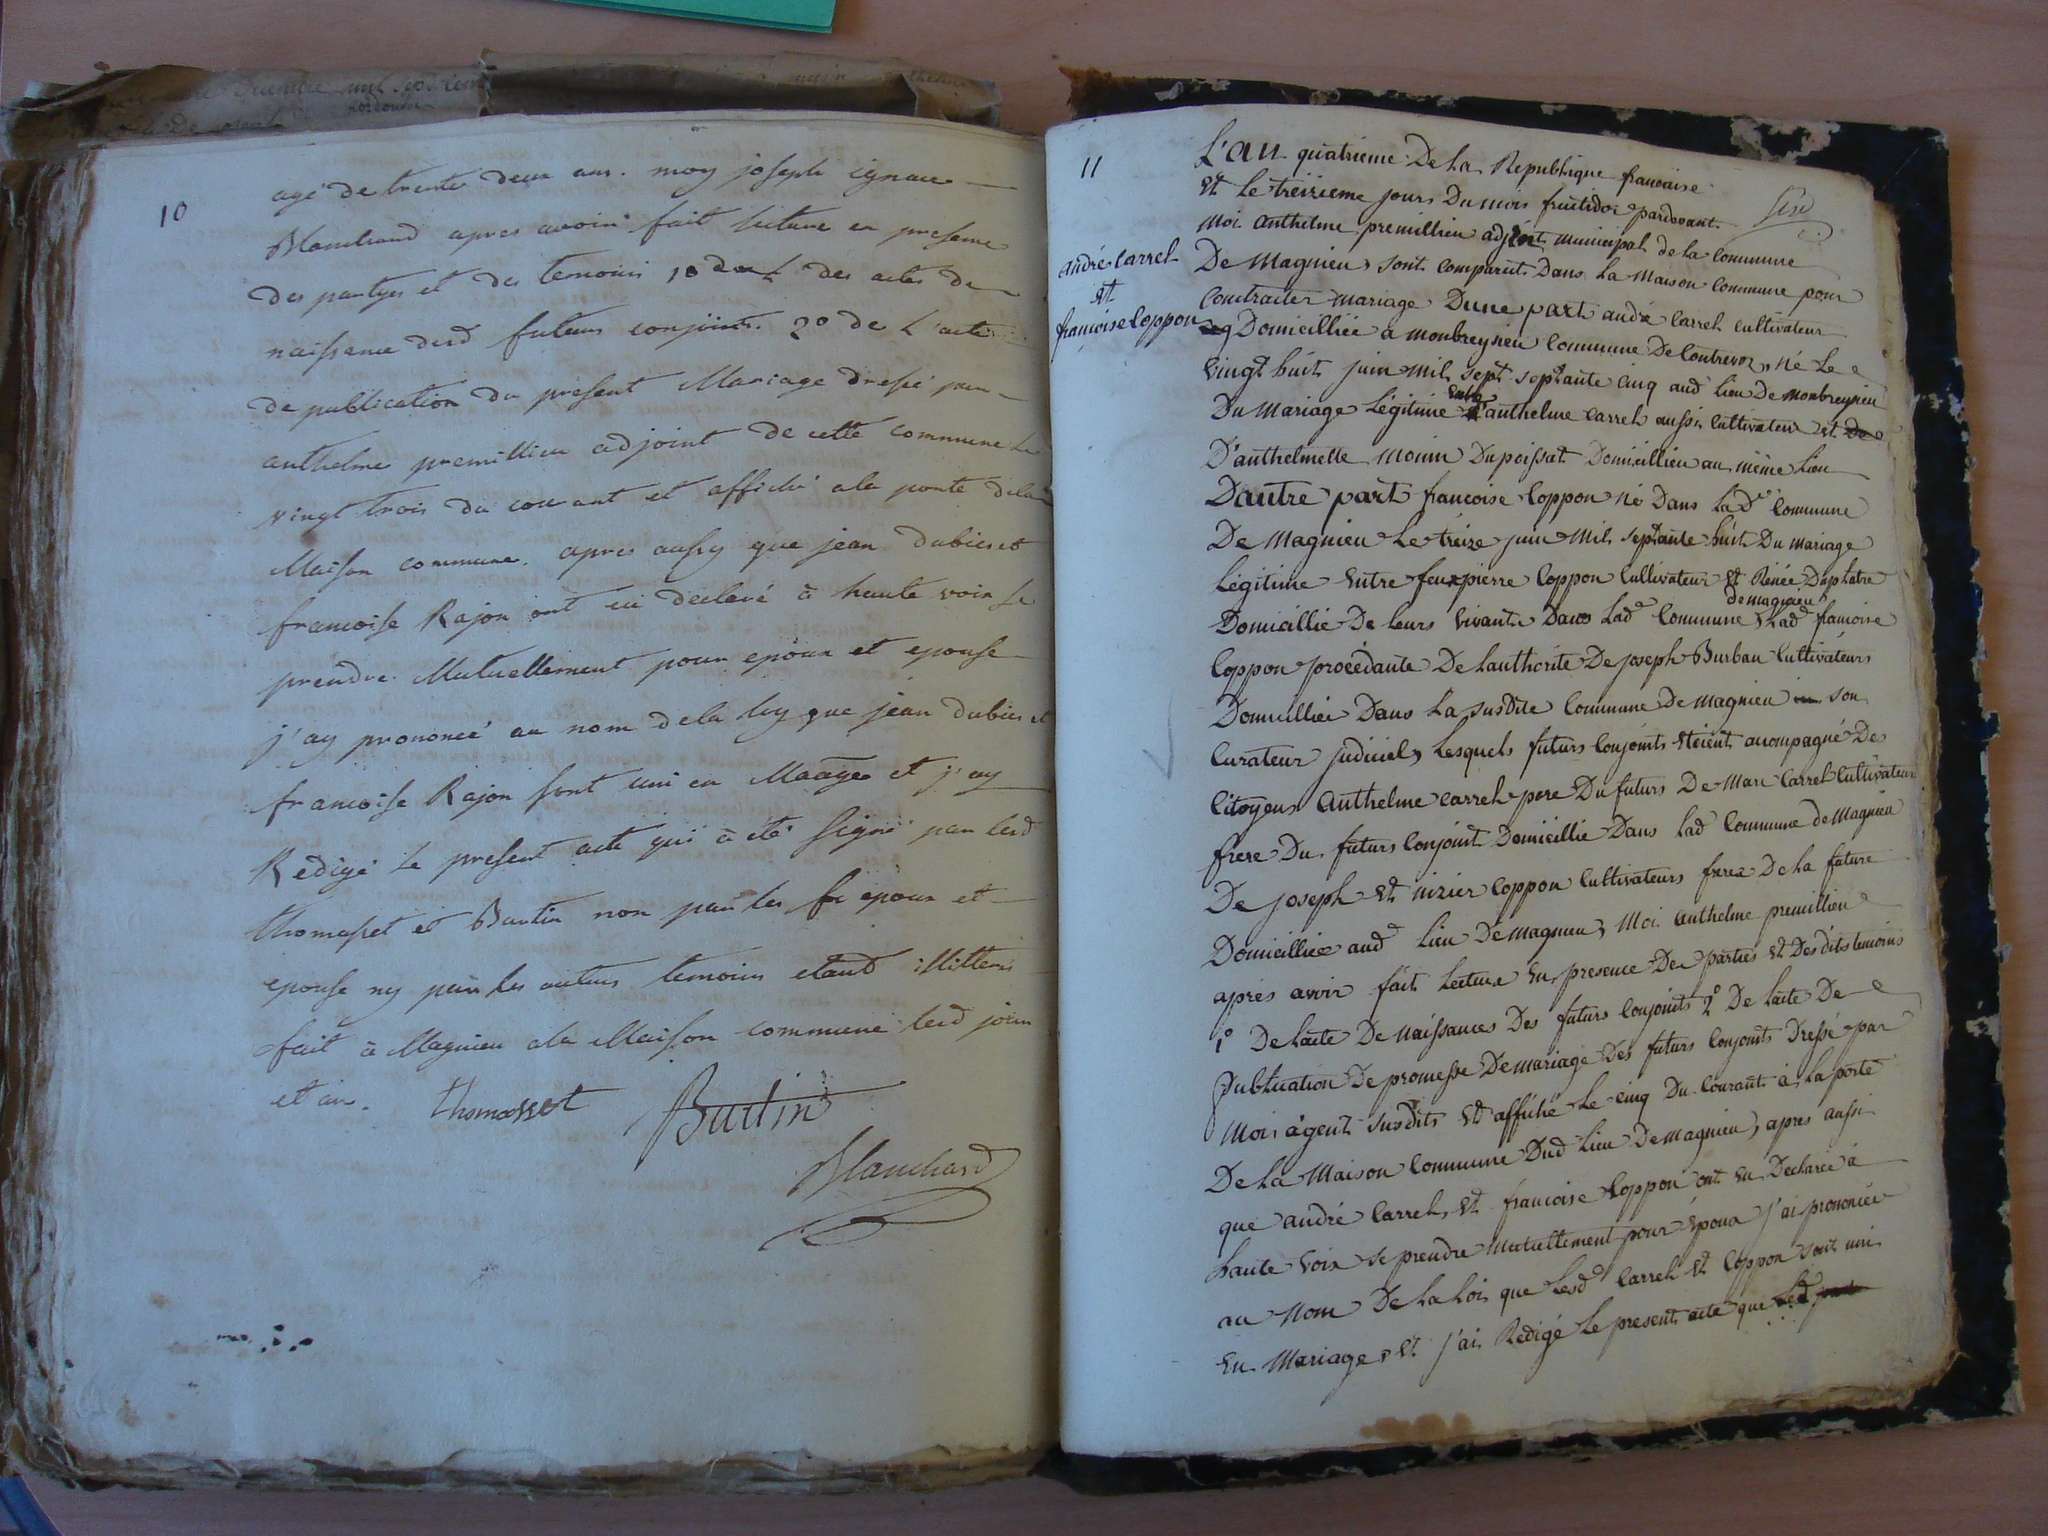 10
agé de trente deux ans. moy joseph ignace
Blanchard apres avoir fait lecture en presence
des partyes et des temoins 1o de L des actes de
naissance desd futurs conjoints. 2o de L'acte
de publication du present Mariage dressé par
anthelme premillieu adjoint de cette commune Le
vingt trois du courant et affiché ala porte dela
Maison commune. apres aussy que jean dubiez et
francoise Rajon ont eu declaré à haute voix se
prendre Mutuellement pour epoux et epouse
j'ay prononcé au nom dela loy que jean dubiez et
francoise Rajon sont uni en Maage et j'ay
Redigé Le present acte qui à eté signé par lesd
thomasset et Burtin non par les fu epoux et
epouse ny par les autres temoins etant illitteres
fait à Magnieu ala Maison commune lesd jour
et an. thomasset Burtin
Blanchard
11
L'an quatrieme De La Republique francaise
Et Le treizieme jours Du mois fructidor pardevant
Moi anthelme premillieu adjoint municipal de la commune
andré Carrel
Et
francoise Coppon
De Magnieu, sont comparut Dans La Maison Commune pour
Contracter mariage Dune part andré Carrel Cultivateur
Domicilliée a monbreysieu Commune De Contrevoz, Né Le
Vingt huit juin Mil sept septante cinq aud lieu De monbreysieu
Du Mariage Légitime entre anthelme Carrel aussi Cultivateur et De
D'anthelmette Monin Dupoissat Domicillieu au même Lieu
Dautre part francoise Coppon Né Dans Lade Commune
De Magnieu Le treize juin Mil septante huit Du mariage
Légitime Entre feux pierre Coppon Cultivateur Et Renée Duplatre
Domicillie De Leurs Vivants Dans Lade Commune de magnieu, Lade francoise
Coppon procedante De Lauthorité De joseph Burbau Cultivateurs
Domicillier Dans La susdite Commune De Magnieu son
Curateur judiciel, Lesquels futurs Conjoints Etoient acompagné De
Citoyens Anthelme Carrel pere Du futurs De Marc Carrel Cultivateurs
frere Du futurs Conjoint Domicillie Dans Lad Commune de Magnieu
De joseph Et nizier Coppon Cultivateurs freres De La future
Domicilliée aud Lieu De magnieu, Moi anthelme premillieu
apres avoir fait Lecture En presence Des parties Et Desdits temoins
1o De Lacte De Naissances Des futurs Conjoints 2o De Lacte De
Publication De promesse De mariage Des futurs Conjoints Dressé par
Moi agent susdits Et affiché Le cinq Du Courant à La porte
De La Maison Commune Dud Lieu De magnieu, apres aussi
que andré Carrel, Et francoise Coppon ont Eu Declarée à
haute Voix se prendre Mutuellement pour Epoux j'ai prononcée
au Nom De La Loi que Lesd Carrel Et Coppon sont uni
En Mariage, Et j'ai Redigé Le present acte que Led